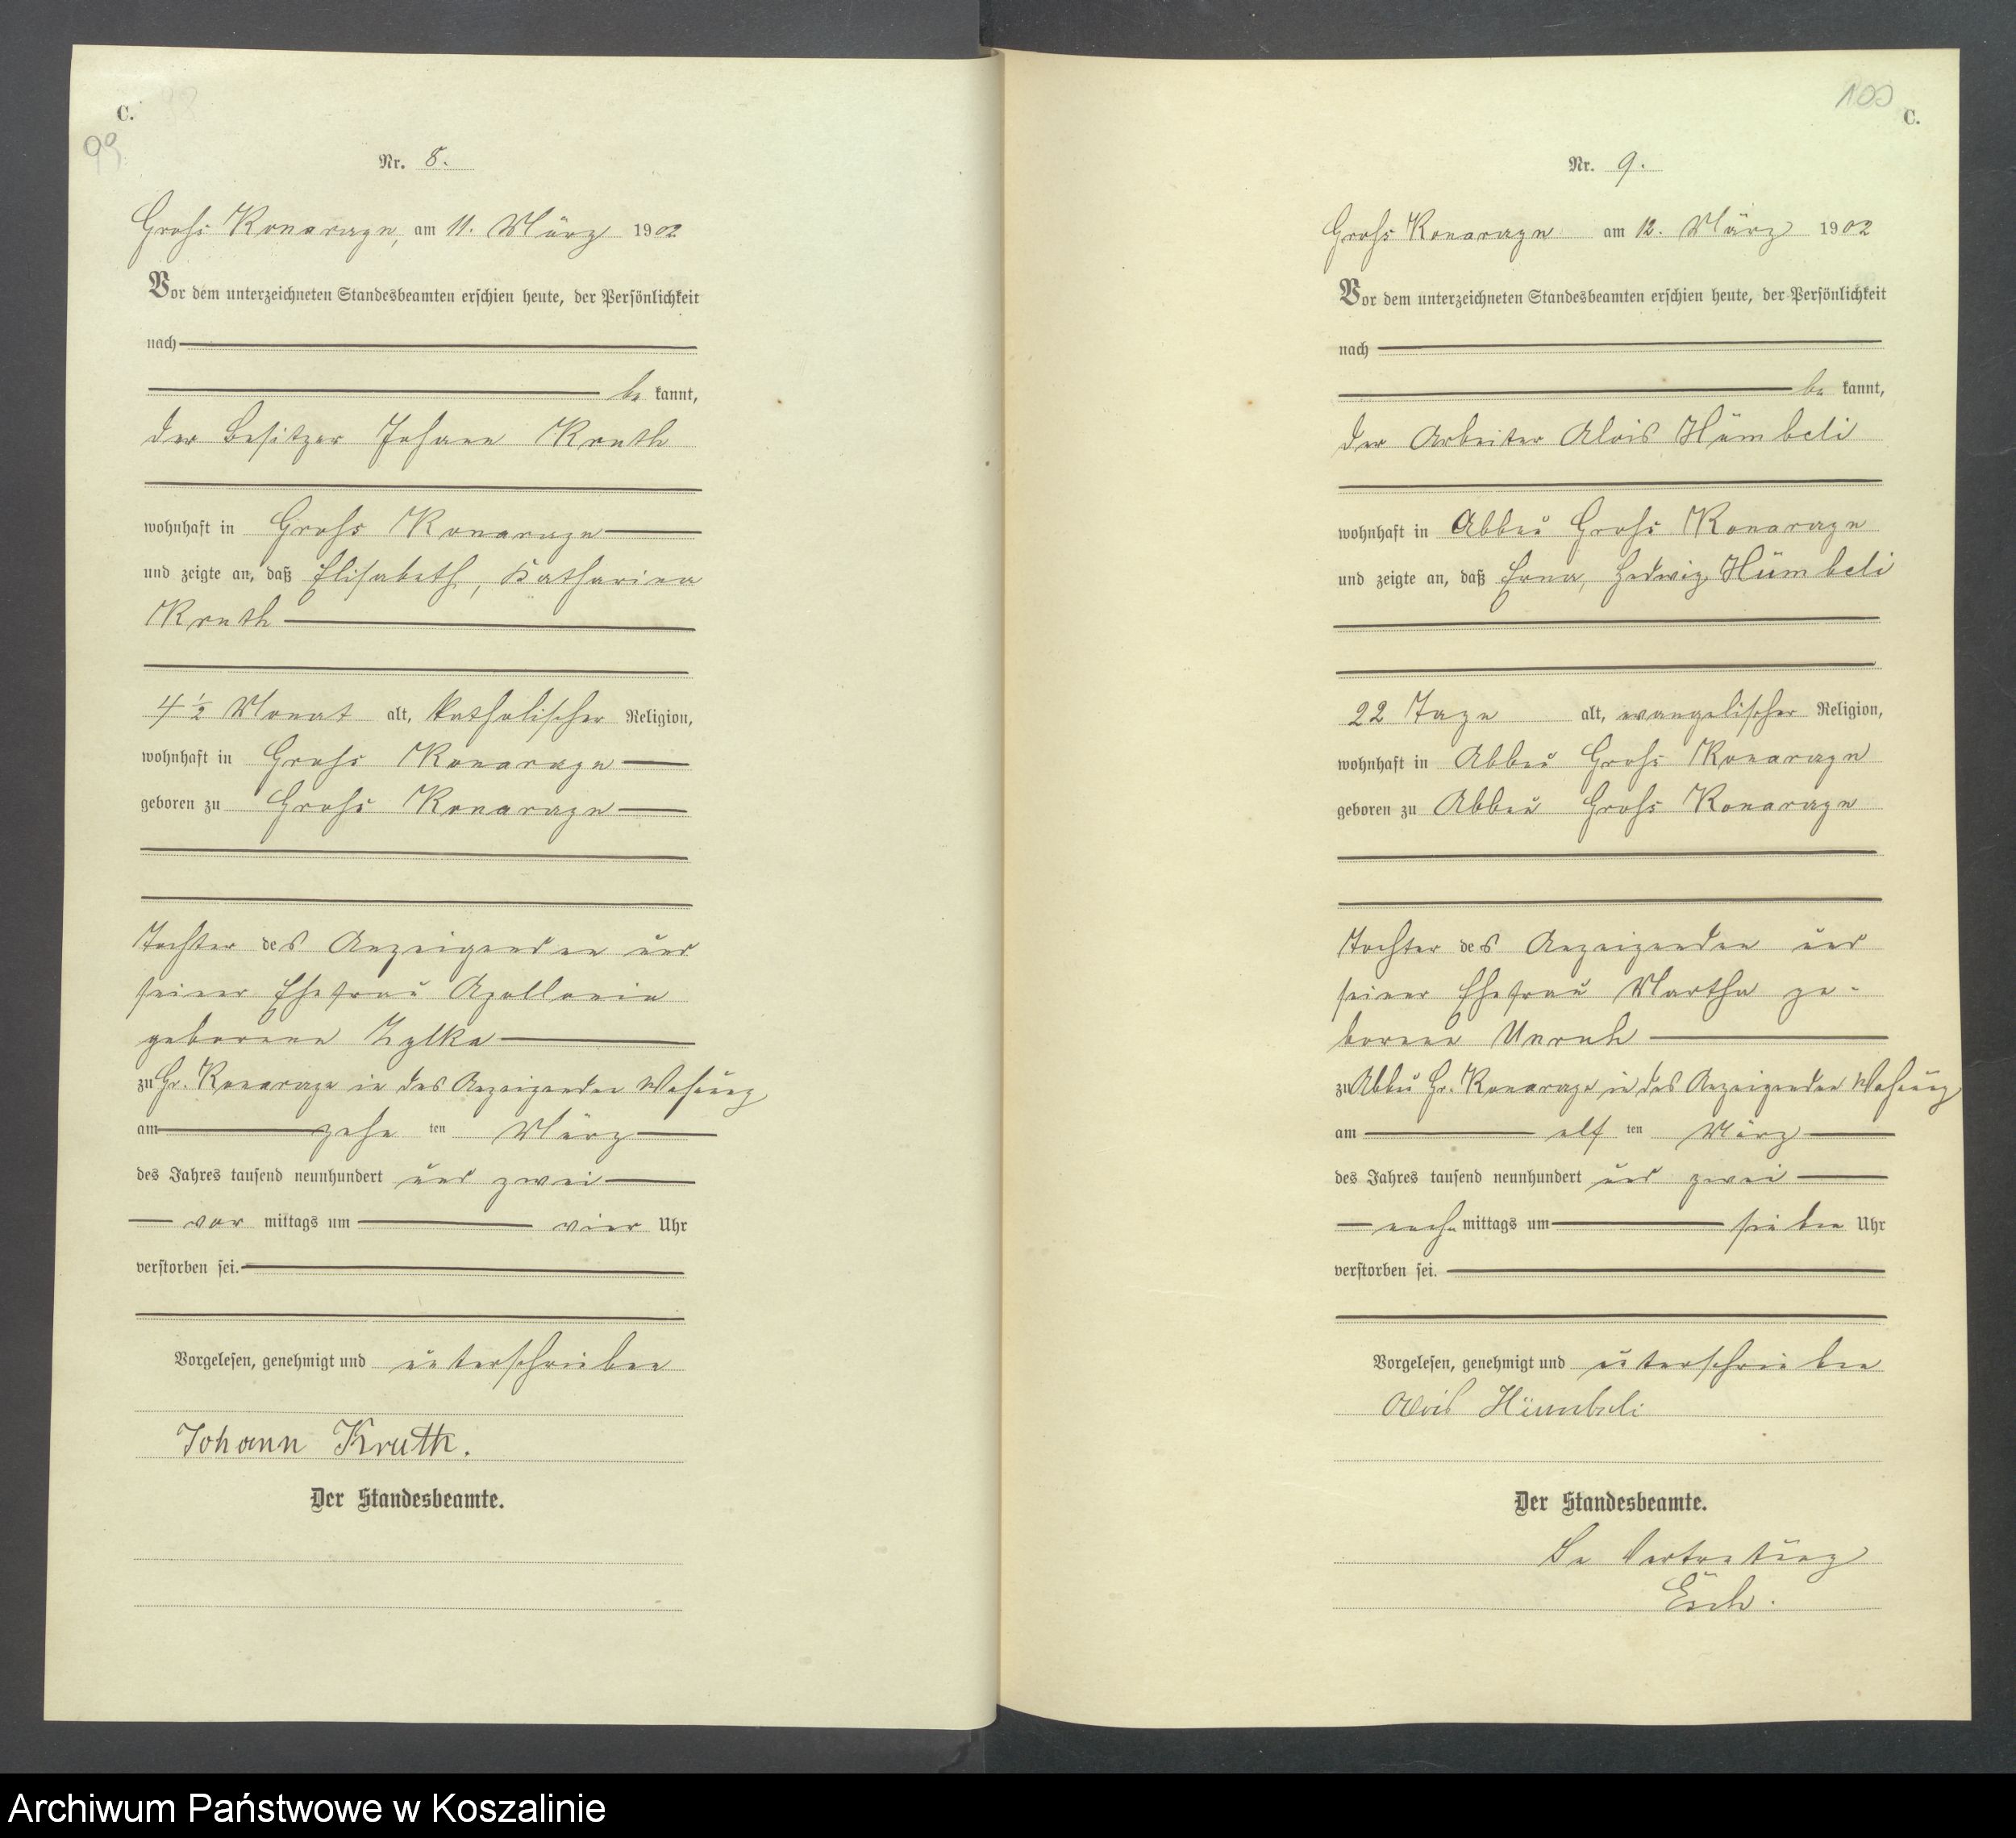 C.
99
Nr. 8.
Gross Konarzyn, am 11. März 1902
Vor dem unterzeichneten Standesbeamten erschien heute, der Persönlichkeit
nach
be kannt,
der Besitzer Johann Kruth
wohnhaft in Gross Konarzyn
und zeigte an, daß Elisabeth, Katharina
Kruth
4 ½ Monat alt, katholischer Religion,
wohnhaft in Gross Konarzyn
geboren zu Gross Konarzyn
Tochter des Anzeigenden und
seiner Ehefrau Apollonia
geborene Zylka
zu Gr. Konarzyn in des Anzeigenden Wohnung
am zehn ten März
des Jahres tausend neunhundert und zwei
vor mittags um vier Uhr
verstorben sei.
Vorgelesen, genehmigt und unterschrieben
Johann Kruth.
Der Standesbeamte.
100
C.
Nr. 9.
Gross Konarzyn am 12. März 1902
Vor dem unterzeichneten Standesbeamten erschien heute, der Persönlichkeit
nach
be kannt,
der Arbeiter Alois Hümbeli
wohnhaft in Abbau Gross Konarzyn
und zeigte an, daß Erna, Hedwig Hümbeli
22 Tage alt, evangelischer Religion,
wohnhaft in Abbau Gross Konarzyn
geboren zu Abbau Gross Konarzyn
Tochter des Anzeigenden und
seiner Ehefrau Martha ge-
borene Unruh
zu Abbau Gr. Konarzyn in des Anzeigenden Wohnung
am elf ten März
des Jahres tausend neunhundert und zwei
nach mittags um sieben Uhr
verstorben sei.
Vorgelesen, genehmigt und unterschrieben
Alois Hümbeli
Der Standesbeamte.
In Vertretung
Archiwum Państwowe w Koszalinie